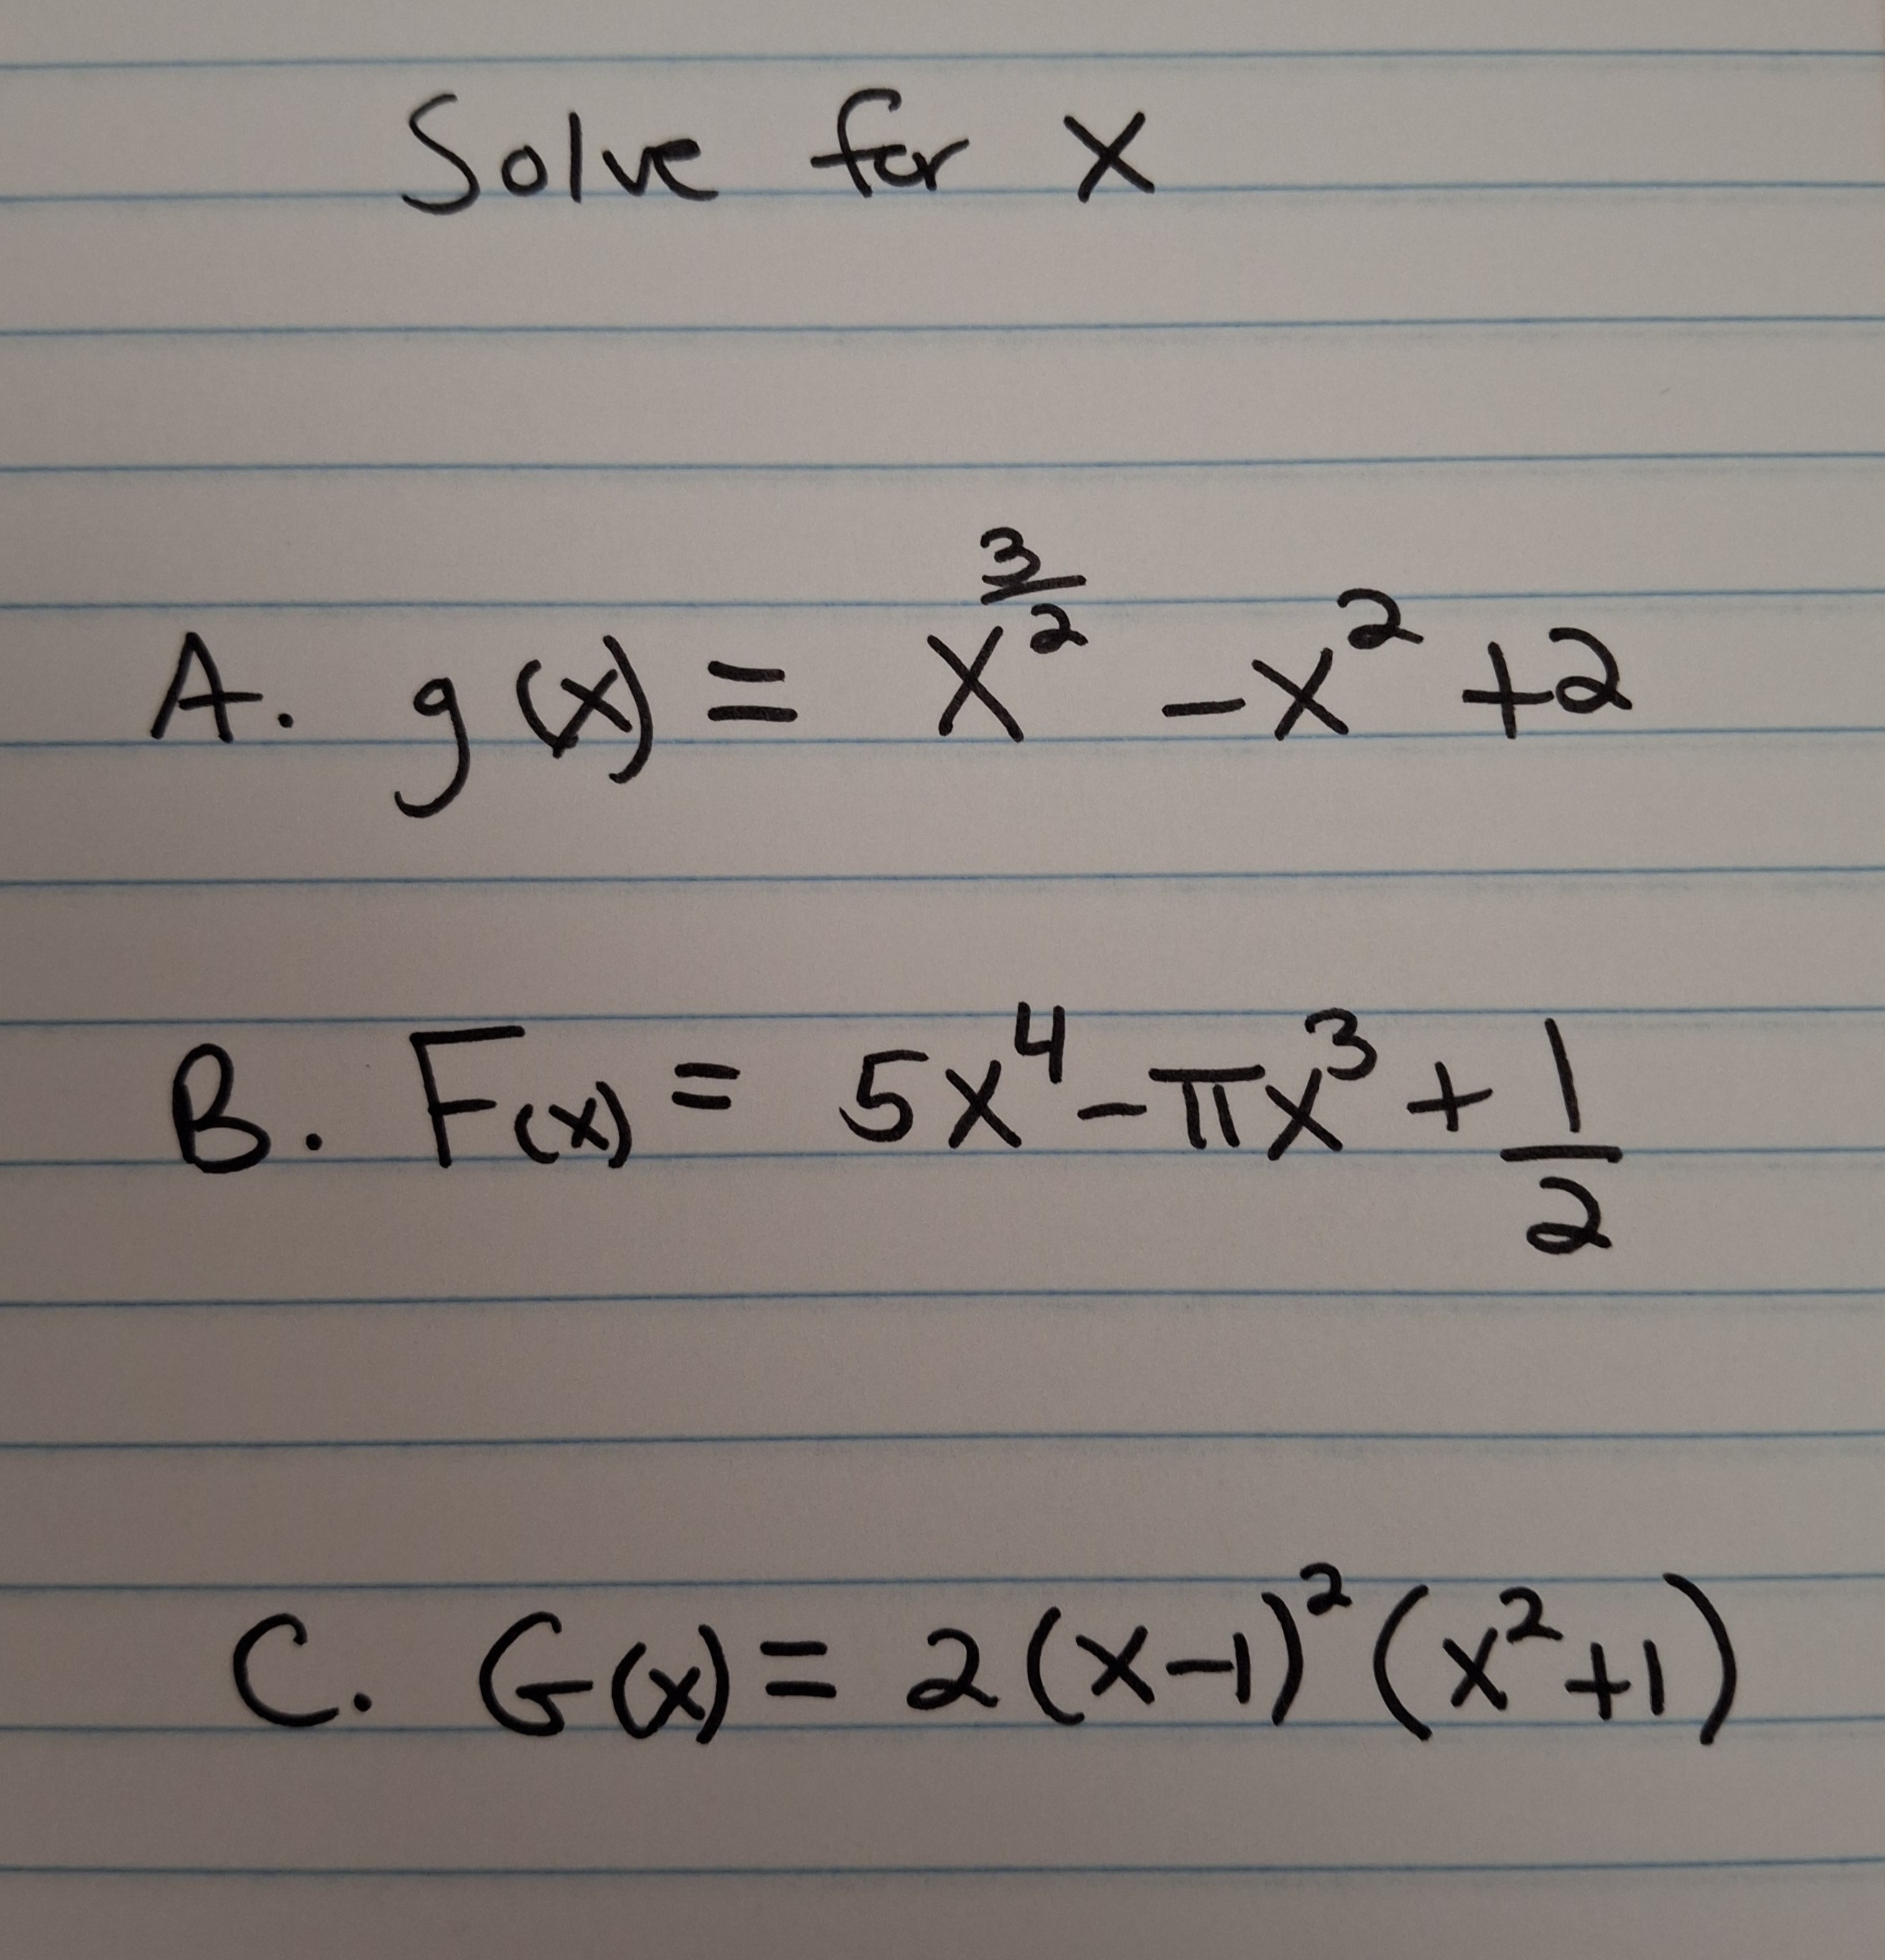 Solve for x
A. g(x) = x^(3/2) - x² + 2
B. F(x) = 5x⁴ - πx³ + 1/2
C. G(x) = 2(x-1)²(x²+1)